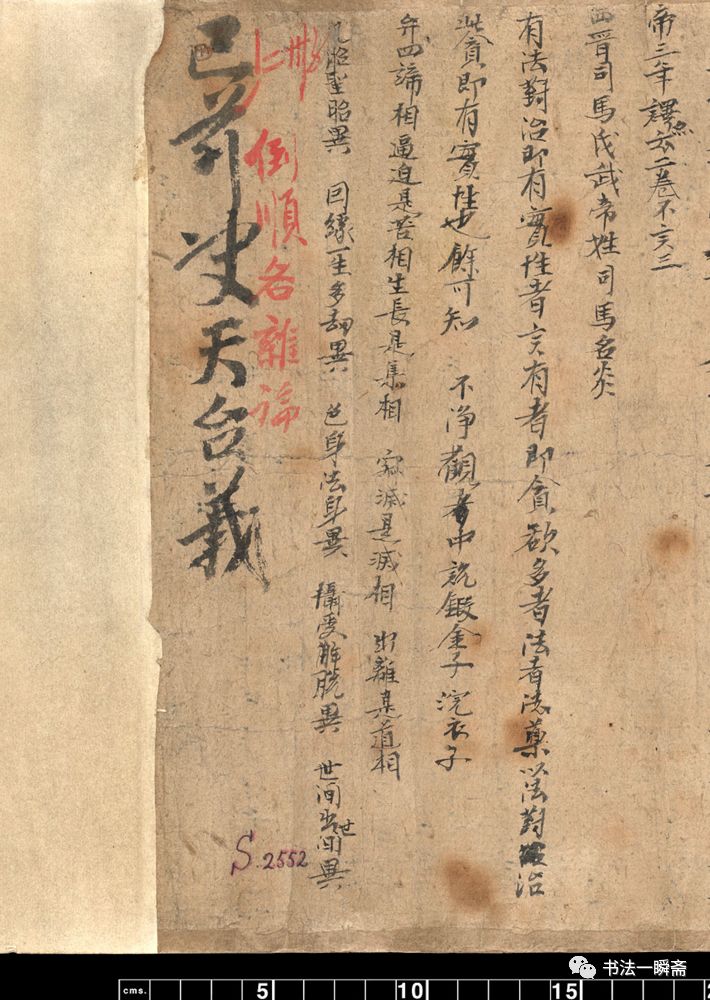 帝三年譯六二卷不言三
西晉司馬氏武帝姓司馬名炎
有法對治即有實性者言有者即貪欲多者法者法藥以法對治
此貪即有實性也餘可知 不淨觀者中說鍛金子浣衣子
弁四諦相逼迫是苦相生長是集相 寂滅是滅相 出離是道相
凡昭聖昭異 回緣一生多劫異 色身法身異 攝受解脫異 世間出世間異
倒順各雜論
已前決天台義
S. 2552
cms. 5 10 15 2
书法一瞬斋